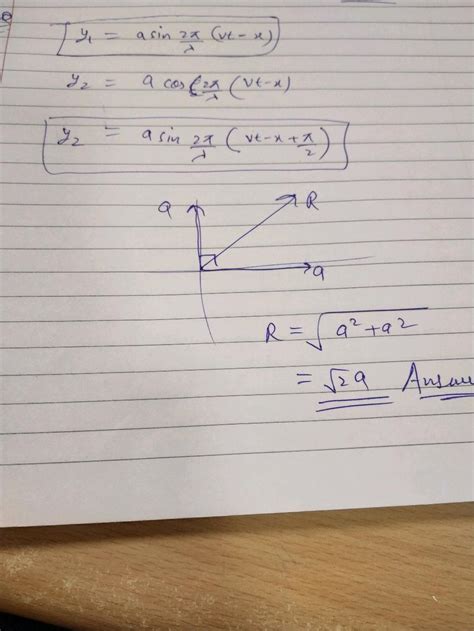 y₁ = a sin 2π/λ (vt-x)
y₂ = a cos (2π/λ (vt-x)
y₂ = a sin 2π/λ (vt-x+π/2)
a R
a
R = √a²+a²
= √2a Answ